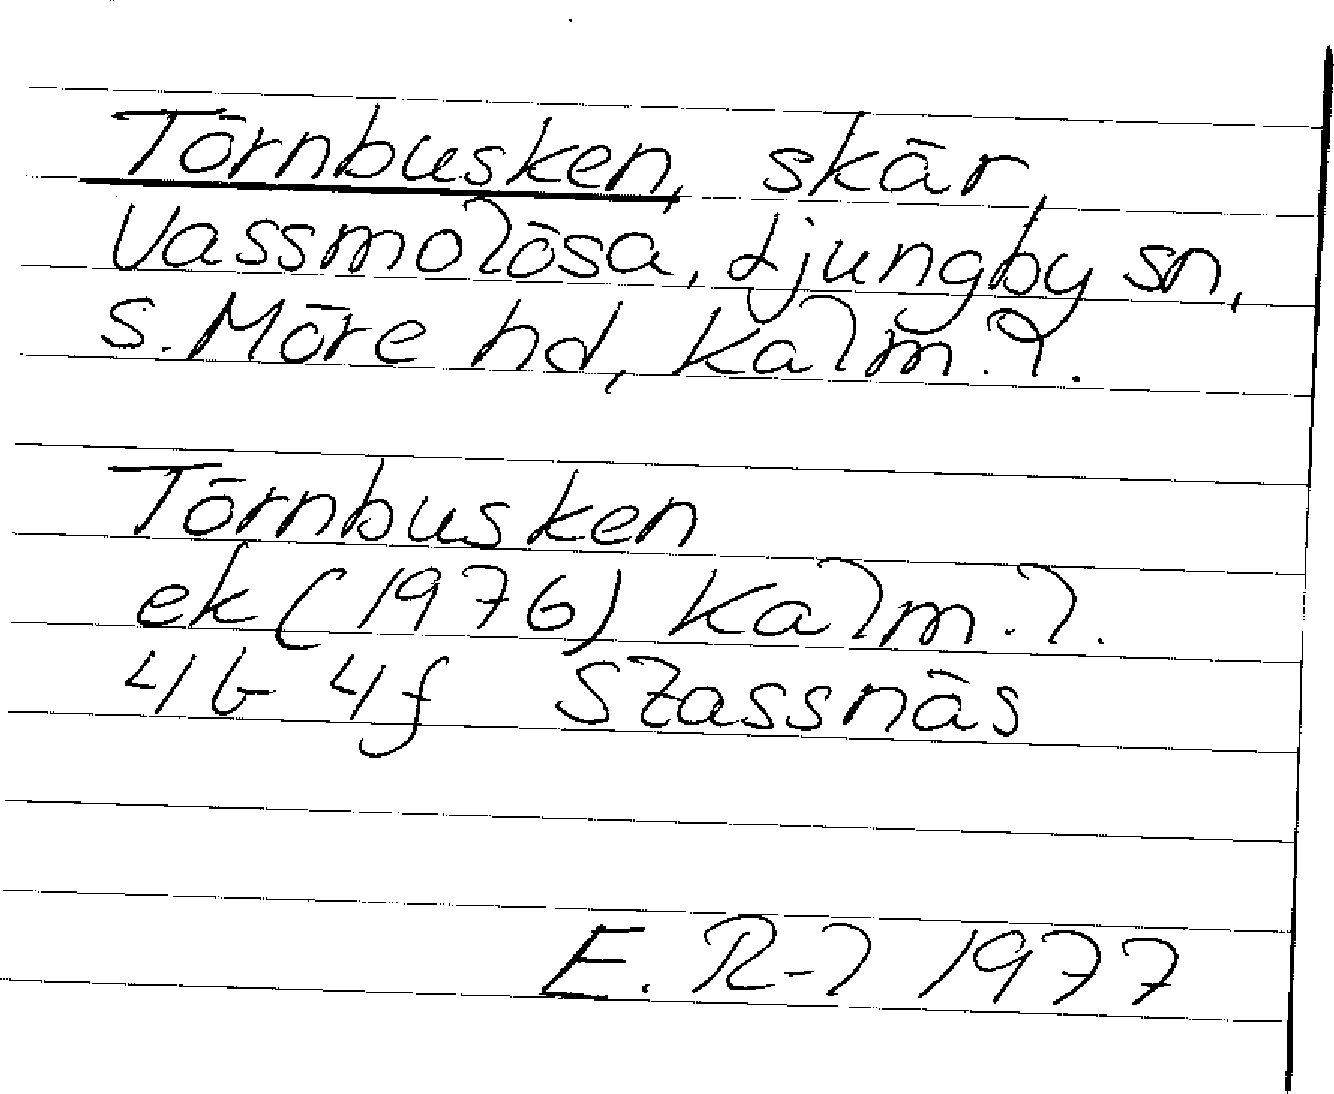 Törnbusken, skär
Vassmolösa, Ljungby sn,
S. Möre hd, Kalm. l.
Törnbusken
ek (1976) Kalm. l.
4G 4f Stassnäs
E. R-l 1977